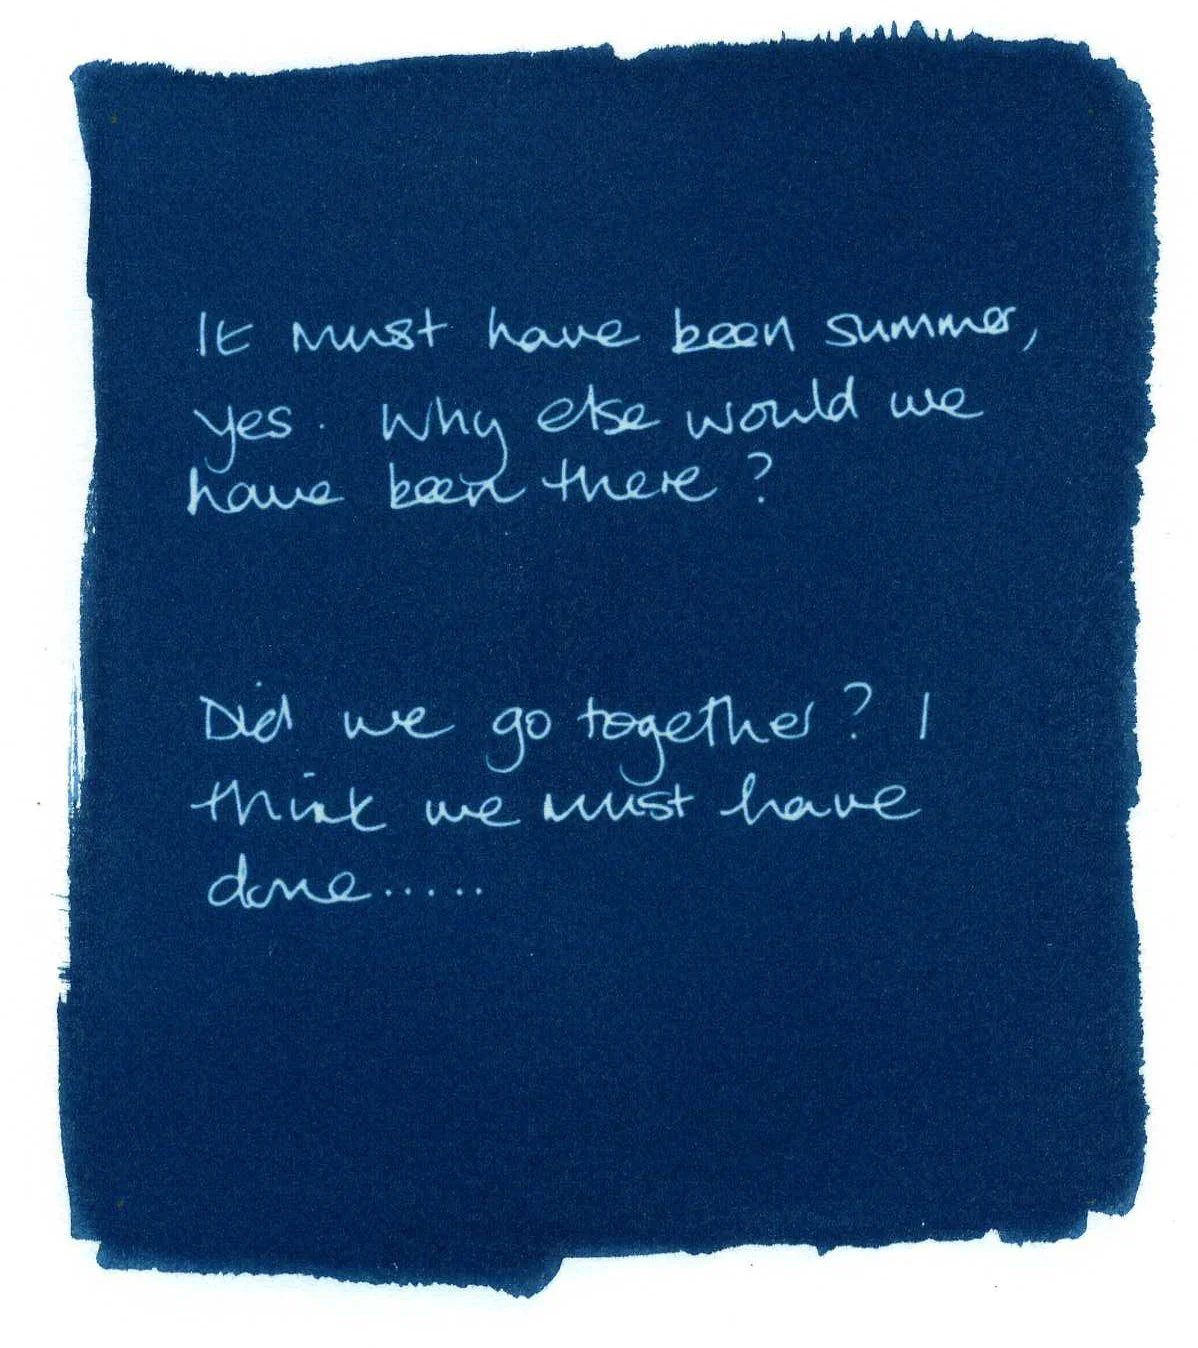 It must have been summer,
yes. Why else would we
have been there?
Did we go together? I
think we must have
done.....